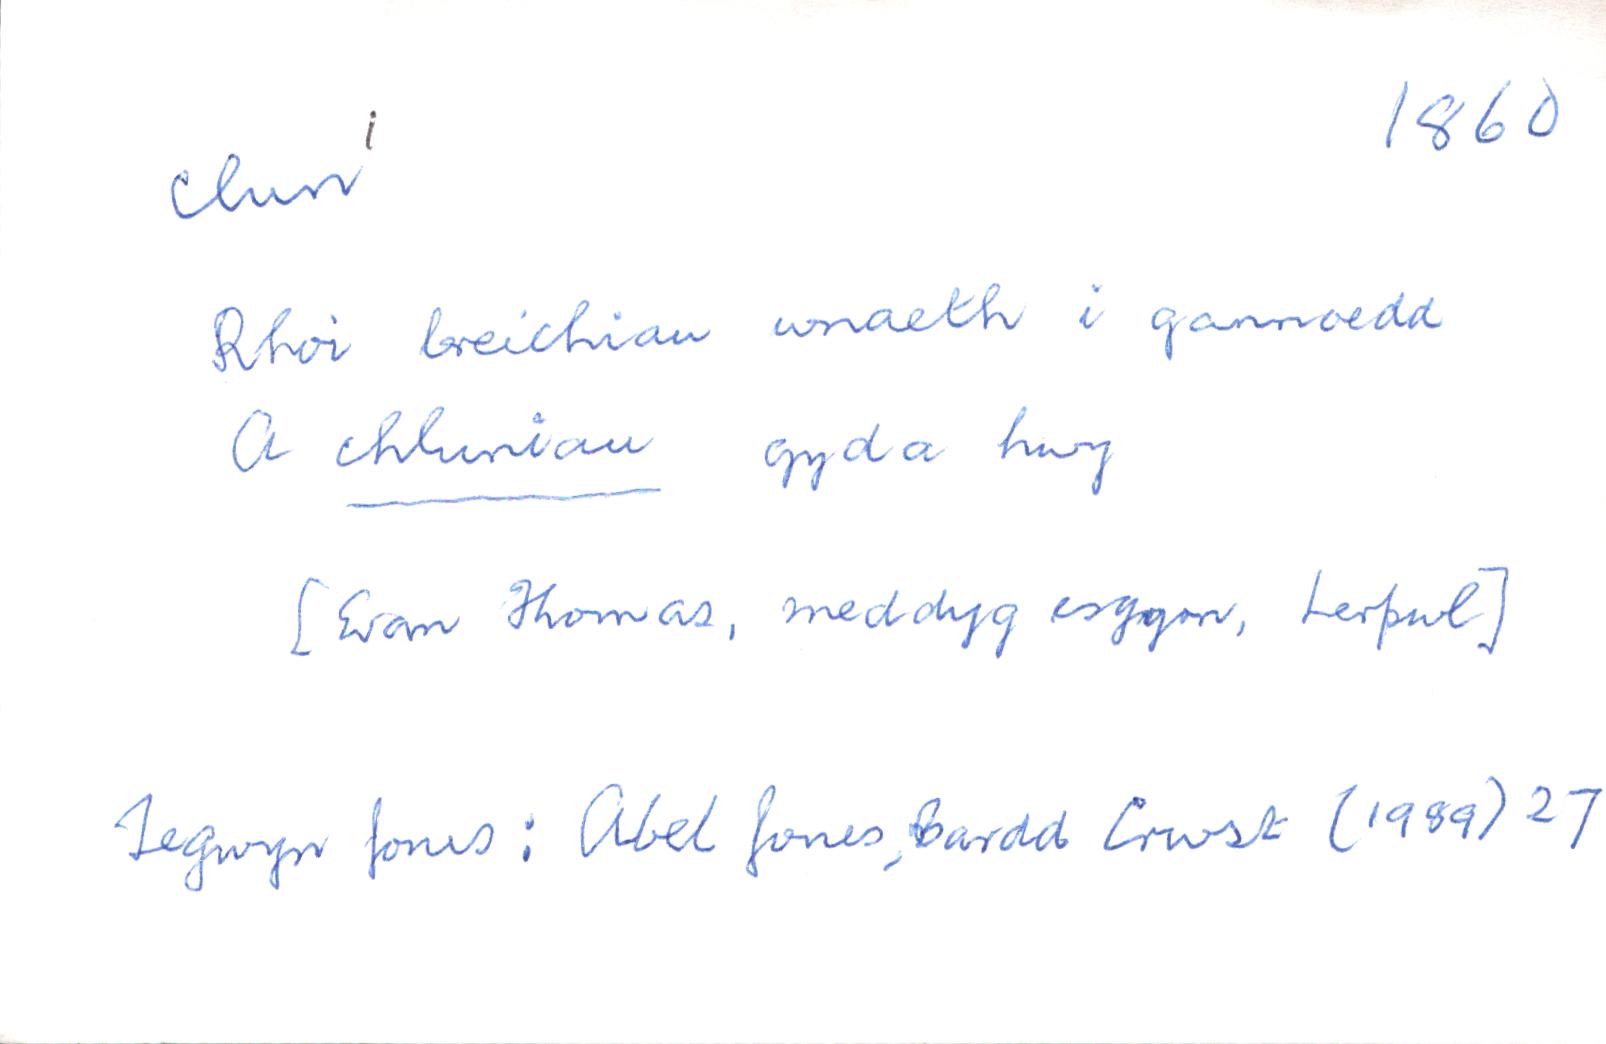 1860
clun i
Rhoi breichiau wnaeth i gannoedd
A chluniau gyda hwy
[Evan Thomas, meddyg esgyrn, Lerpwl]
Tegwyn Jones: Abel Jones, Bardd Crwst (1989) 27